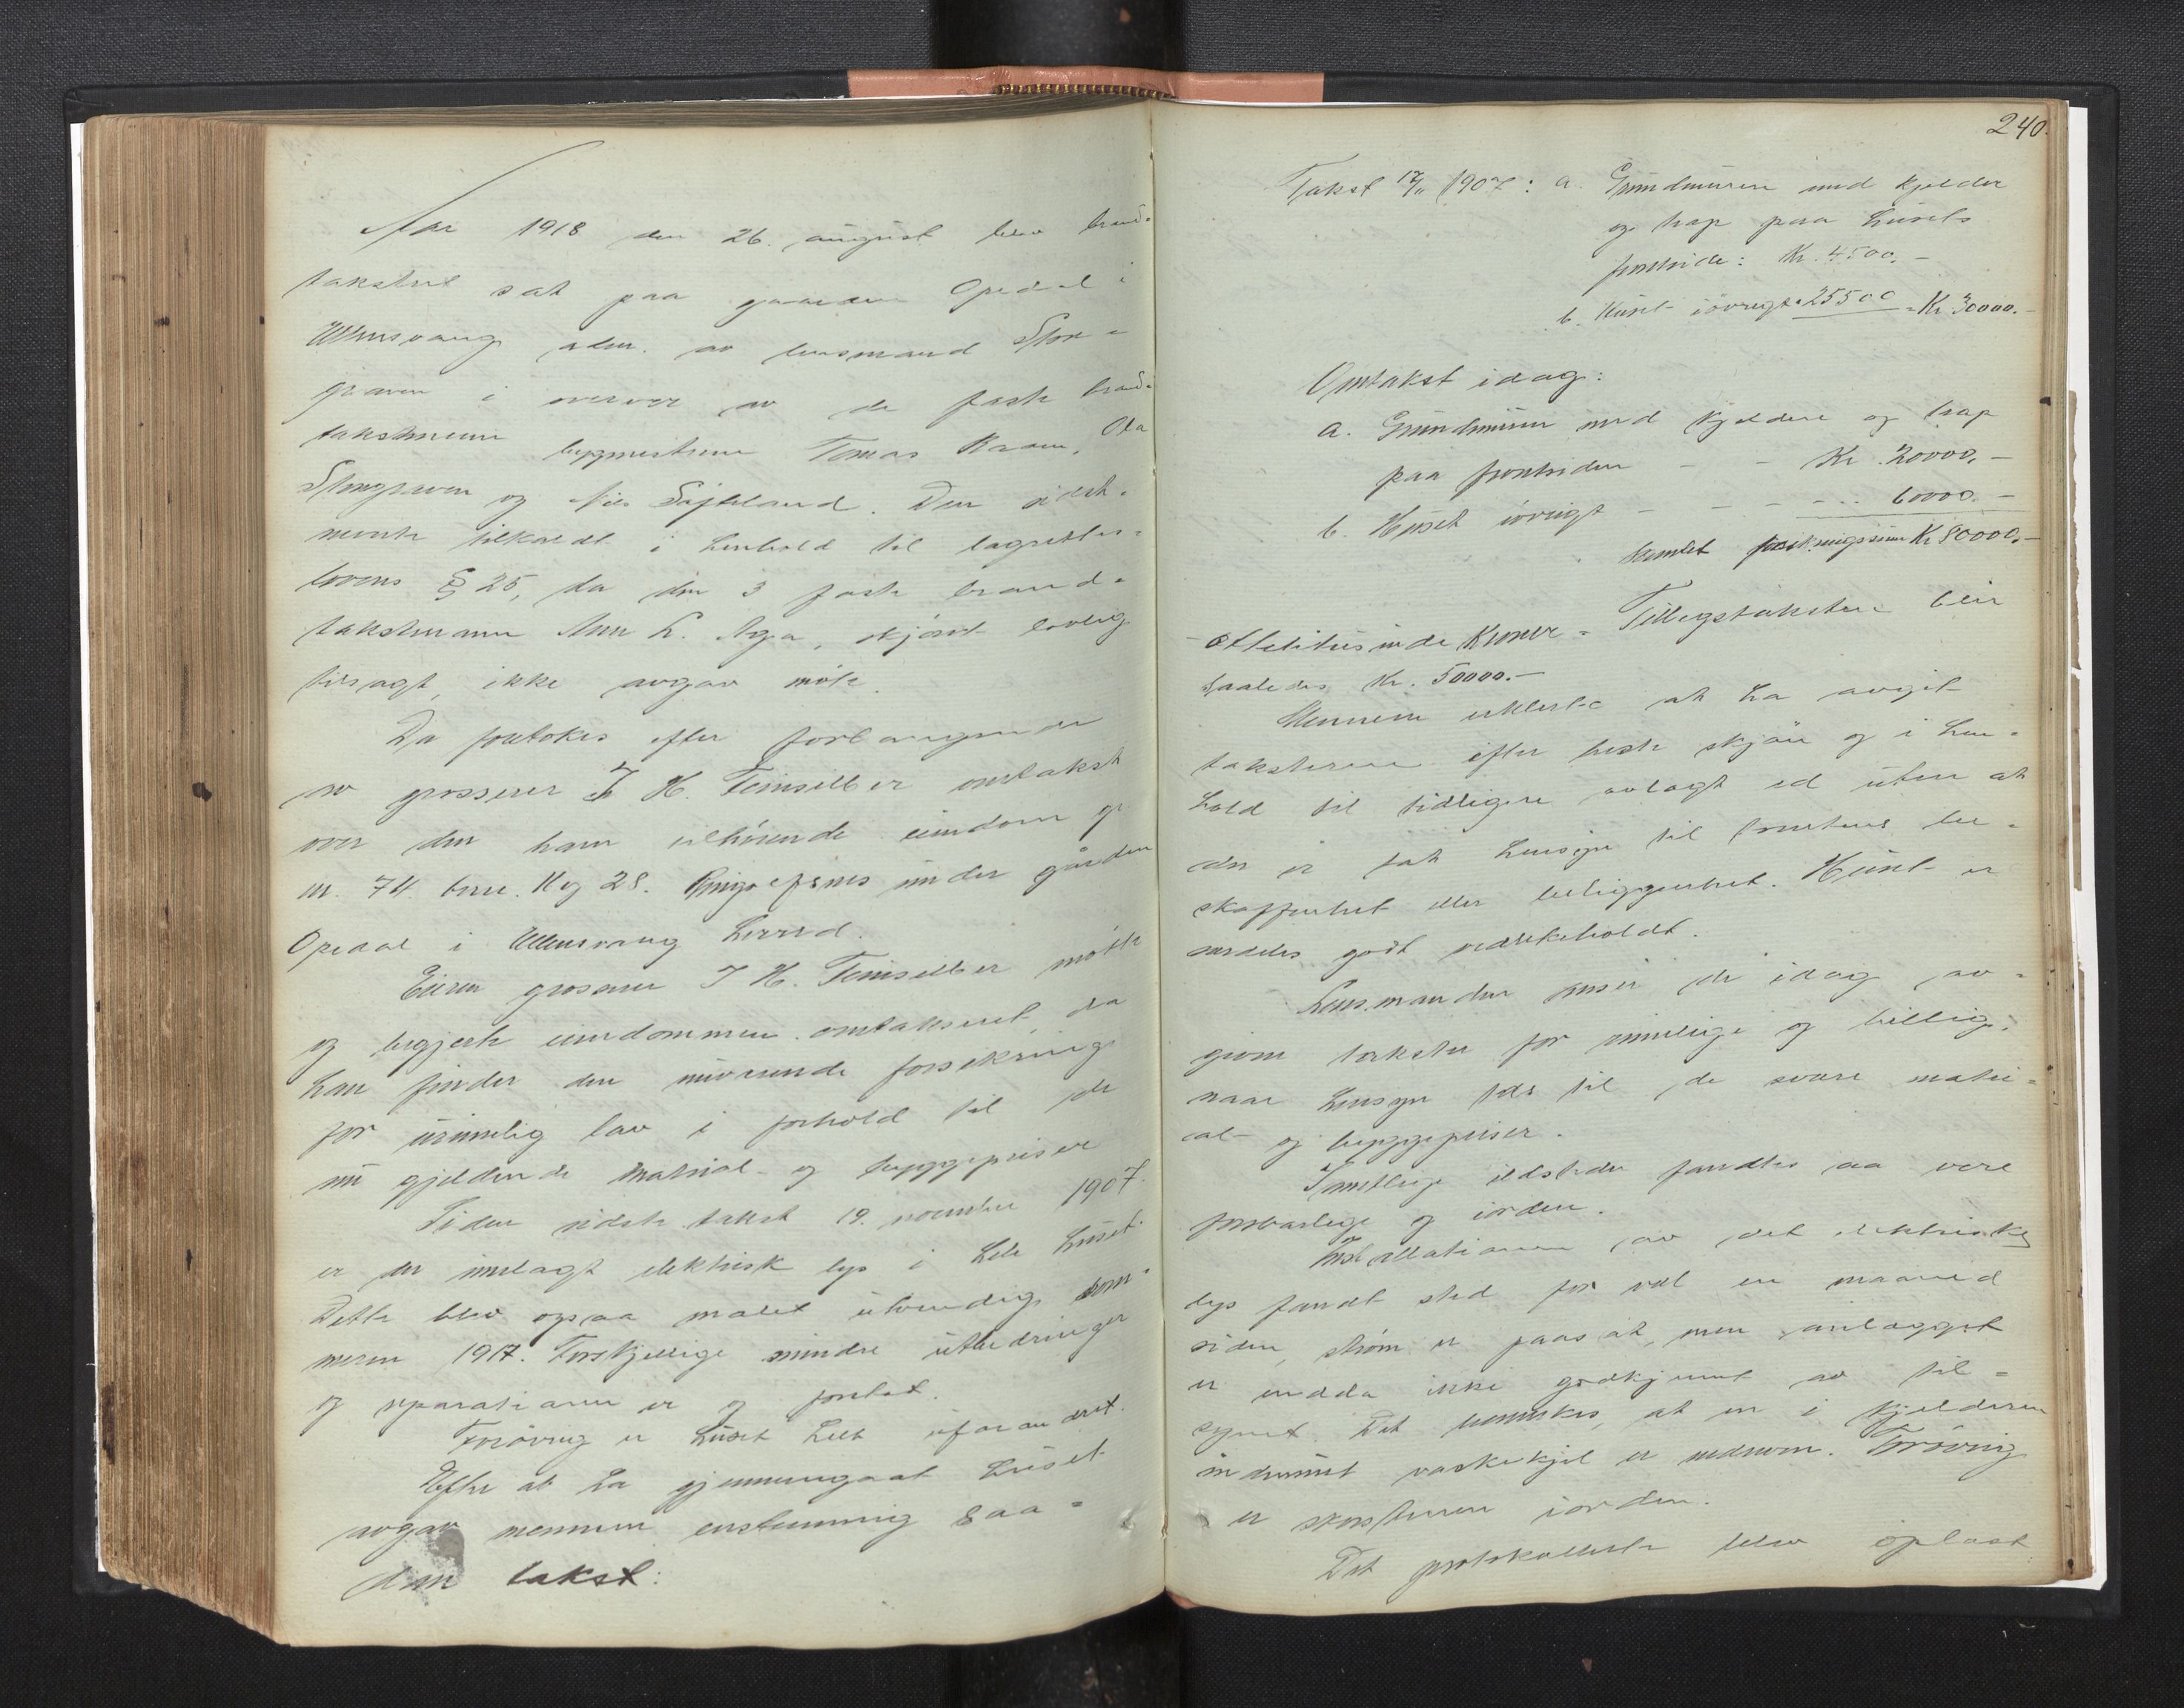 Aar 1918 den 26. august blev brand-
takstret sat paa gaarden Opedal i
Ullensvang adm. av lensmand Ston-
graven i overvær av de faste brand-
takstmenn byggmestrene Tomas Aasen, Ola
Stongraven og Nils Søfteland. Den sidst-
nevnte tilkaldt i henhold til lagrettes-
lovens § 25, da den 3 faste brand-
takstmann Amn L. Aga, skjønt lovlig
tilsagt, ikke avgav møte.
Da foretokes efter forlangende
av grosserer J. H. Teinsilber omtakst
over den ham tilhørende eiendom g
nr. 74. bnr. 11 og 28. under gården
Opedal i Ullensvang herred.
Eieren grosserer J H. Teinsilber møtte
og begjerte eiendommen omtakseret, da
han finder den nuværende forsikring
for urimelig lav i forhold til de
nu gjeldende material- og byggepriser
Siden sidste takst 19. november 1907.
er der innlagt elektrisk lys i hele huset.
Dette blev ogsaa malet utvendig som-
meren 1917. Forskjellige mindre utbedringer
og reparationer er og foretat.
Forøvrig er huset helt uforandret.
Efter at ha gjennemgaat huset
avgav mennene enstemmig saa-
dan takst:
240.
Takst 1907: a. Grundmuren med kjelder
og trap paa husets
frontside: Kr. 4500.-
b. Huset iøvrigt " 25500 = Kr 30000.-
Omtakst idag:
a. Grundmuren med kjeldere og trap
paa frontsiden - - Kr. 20000,-
b. Huset iøvrigt - - - - - 60000.-
Samlet forsikringssum Kr 80000,-
- Ottetitusinde Kroner - Tillegstaksten blir
saaledes Kr. 50000.-
Mennene erklerte at ha avgit
taksterne efter beste skjøn og i hen-
hold til tidligere avlagt ed uten at
der er tat hensyn til tomtens be-
skaffenhet eller beliggenhet. Huset er
serdeles godt vedlikeholdt.
Lensmanden anser de idag av-
givne takster for rimelige og billige,
naar hensyn tas til de svære materi-
al- og byggepriser.
Samtlige ildsteder fandtes aa vere
forsvarlige og iorden.
Installationen av det elektriske
lys fandt sted for vel en maaned
siden, strøm er paasat, men anlægget
er endda ikke godkjennt av til-
synet. Det bemerkes, at en i kjelderen
indmuret vaskekjel er nedreven. Forøvrig
er skorstenene iorden.
Det protokollerte blev oplæst